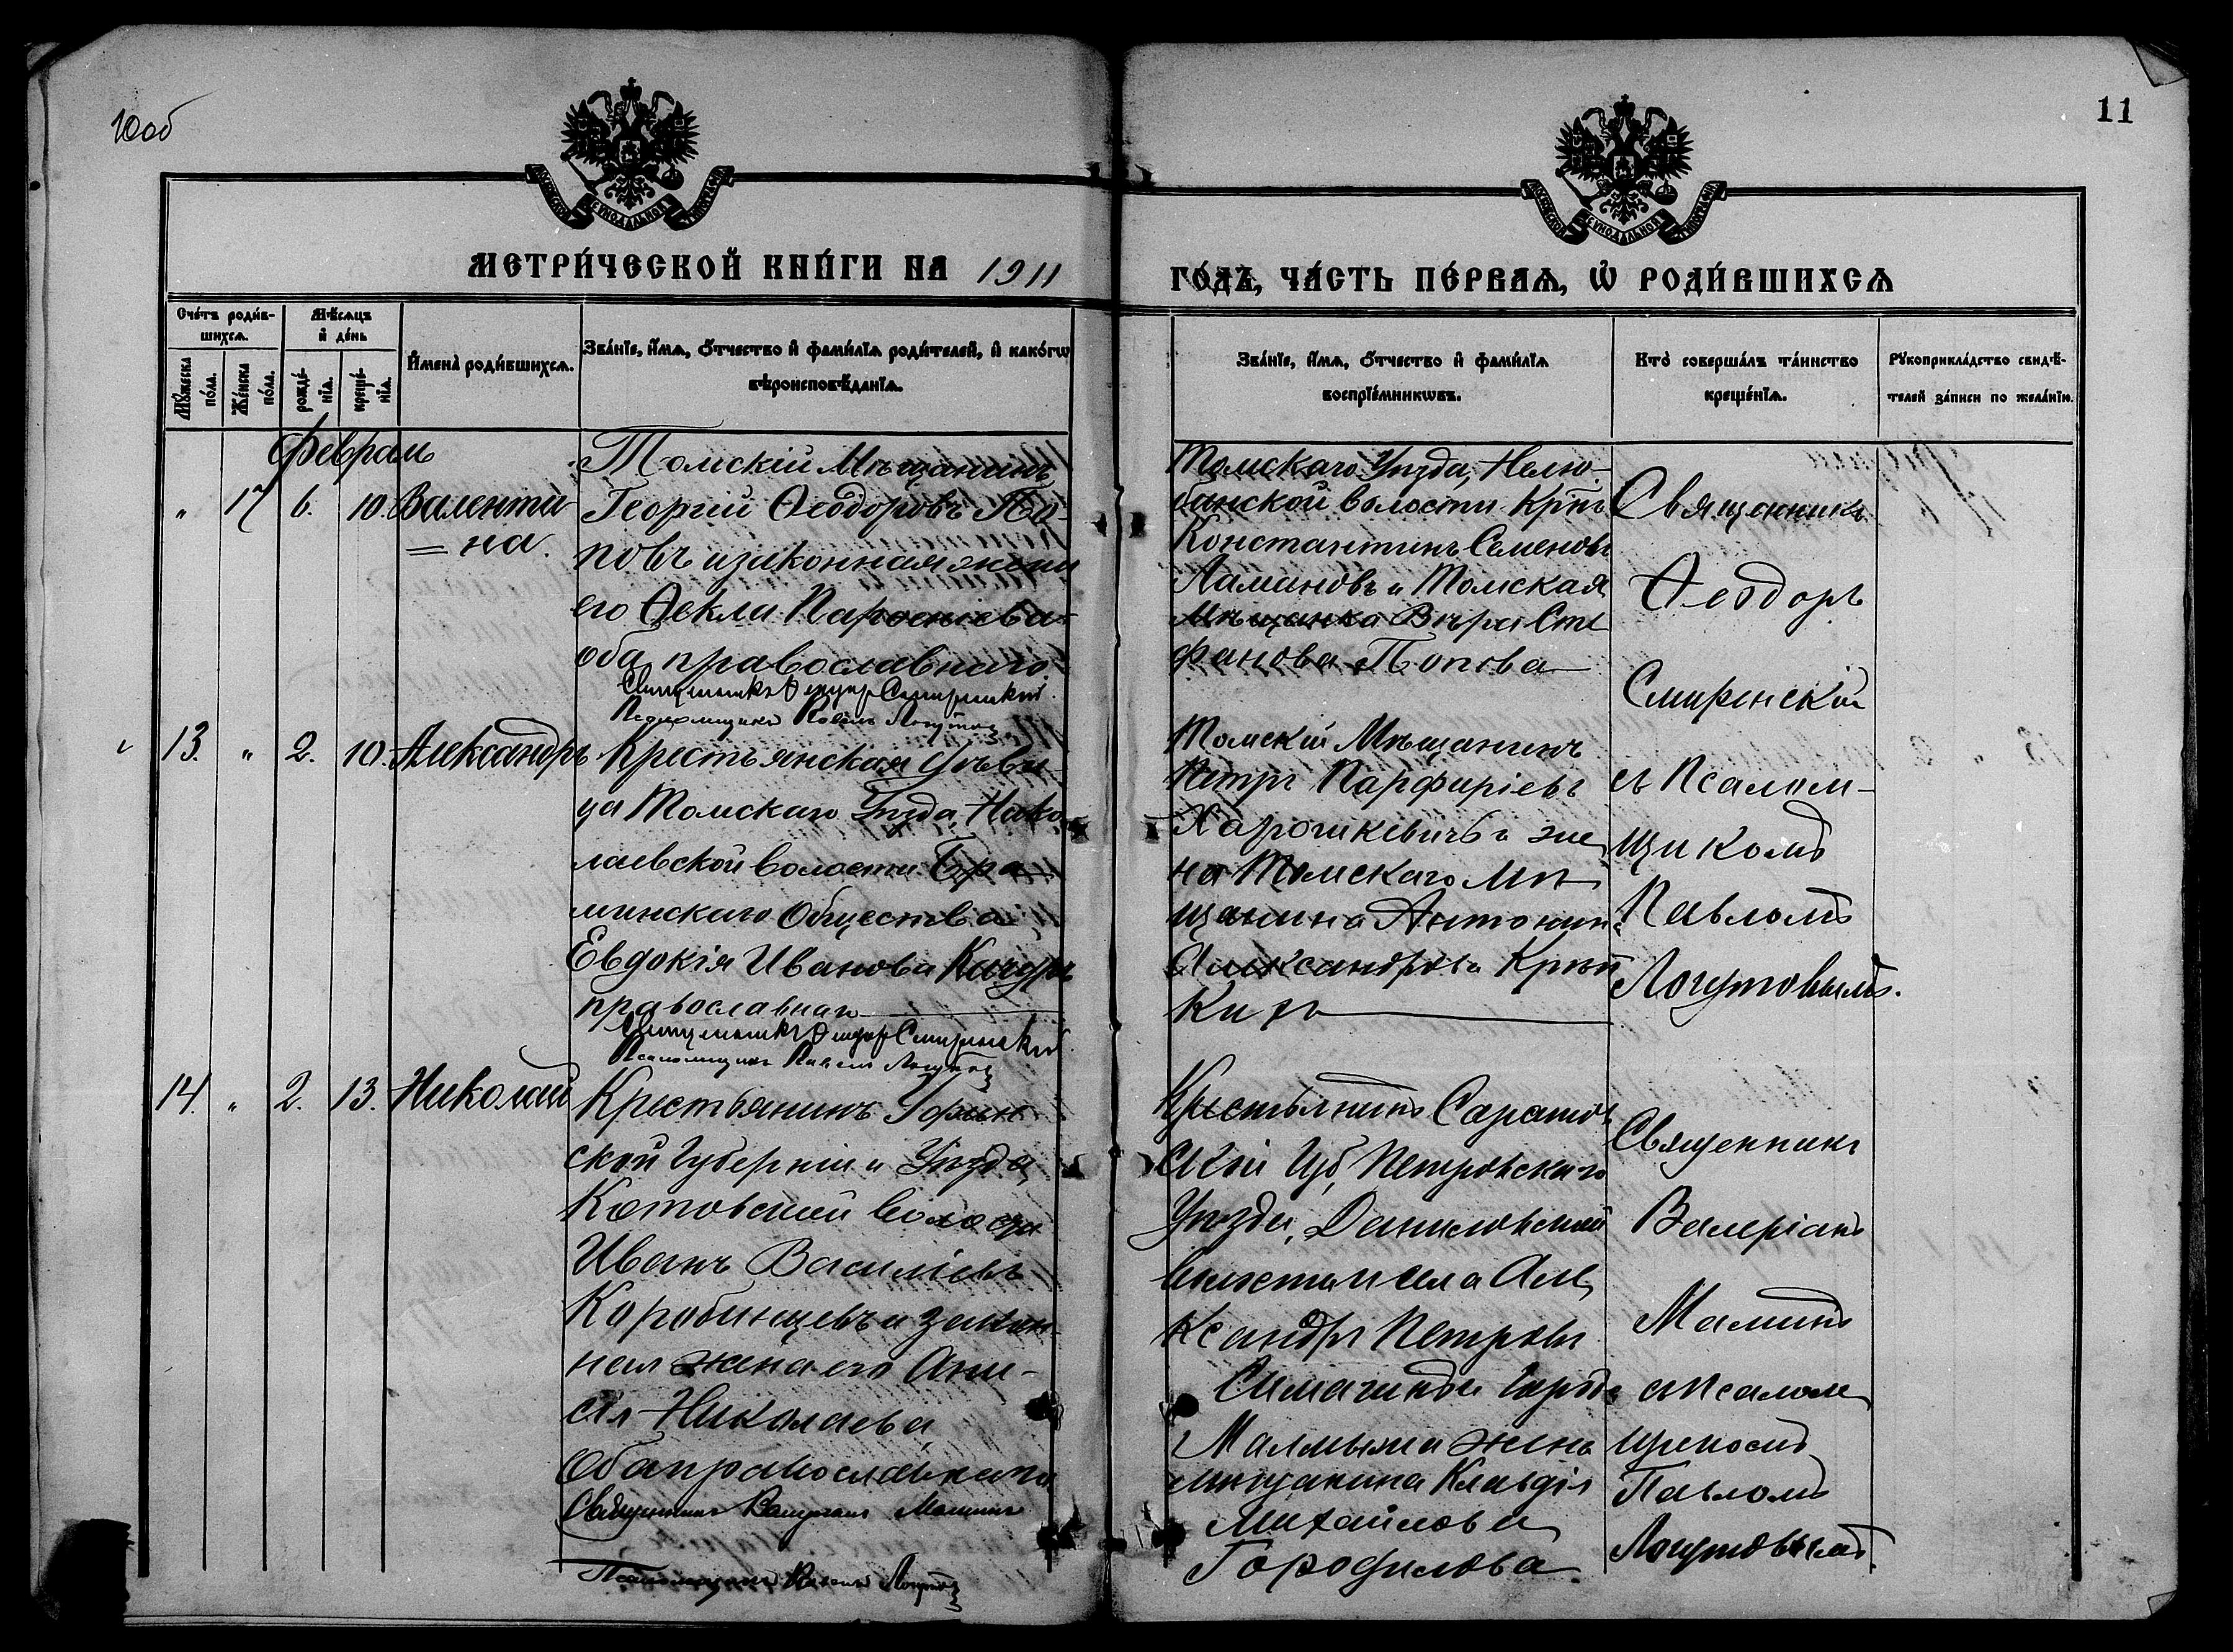 10об
11
МОСКОВСКОЙ СѴНОДАЛЬНОЙ ТИПОГРАФІИ
МОСКОВСКОЙ СѴНОДАЛЬНОЙ ТИПОГРАФІИ
МЕТРИ́ЧЕСКОЙ КНИ́ГИ НА 1911
ГО́ДЪ, ЧА́СТЬ ПЕ́РВАѦ, Ѡ҆ РОДИ́ВШИХСѦ
Сче́тъ роди́в-
шихсѧ.
Мꙋ́жеска
по́ла.
Же́нска
по́ла.
Мѣ́сѧцъ
и҆ де́нь
рожде́-
нїѧ.
креще́-
нїѧ.
И҆мена̀ роди́вшихсѧ.
Зва́нїе, и҆́мѧ, ѻ҆́тчество и҆ фами́лїѧ роди́телей, и҆ како́гѡ
вѣроисповѣ́данїѧ.
Зва́нїе, и҆́мѧ, ѻ҆́тчество и҆ фами́лїѧ
воспрїе́мникѡвъ.
Кто̀ соверша́лъ та́инство
креще́нїѧ.
Рꙋкоприкла́дство свидѣ́-
телей за́писи по жела́нїю.
Февраль
" 17 6. 10. Валенти-
=на.
Томскій Мѣщанинъ
Георгій Ѳеодоровъ По-
повъ и законная жена
его Ѳекла Парѳеніева
оба православнаго
Священникъ Ѳеодоръ Смиренскій
Псаломщикъ Павелъ Логутовъ
Томскаго Уѣзда, Нелю-
бинской волости Крнъ
Константинъ Семеновъ
Ламановъ и Томская
Мѣщанка Вѣра Сте
фанова Попова
Священникъ
Ѳеодоръ
Смиренскій
съ Псалом-
щикомъ
Павломъ
Логутовымъ.
13. " 2. 10. Александръ
Крестьянская дѣви
ца Томскаго Уѣзда, Нико
лаевской волости
минскаго Общества
Евдокія Иванова
православная
Священникъ Ѳеодоръ Смиренскій
Псаломщикъ Павелъ Логутовъ
Томскій Мѣщанинъ
Петръ Парфиріевъ
Харошкевичъ и же
на Томскаго Мѣ
щанина Антонина
Александрова
14. " 2. 13. Николай
Крестьянинъ Уфим
ской Губерніи и Уѣзда,
Котовской волости
Иванъ Васильевъ
Коробинцевъ и закон-
ная жена его Ани-
сія Николаева
Оба православнаго
Священникъ Валеріанъ Маминъ
Псаломщикъ Павелъ Логутовъ
Крестьянинъ Саратов
ской Губ, Петровскаго
Уѣзда, Даниловской
волости и села Але
ксандръ Петровъ
Симагинъ и Города
Малмыжа жена
мѣщанина Клавдія
Михайлова
Горофилова
Священникъ
Валеріанъ
Маминъ
съ псалом
щикомъ
Павломъ
Логутовымъ.